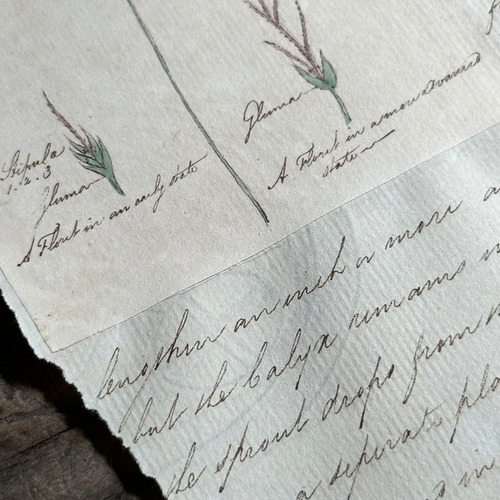 Stipula
1. 2. 3
Gluma
A Floret in an early state
Gluma
A Floret in a more advanced
state
lengthen an inch or more
but the Calyx remains
the sprout drops from
a seperate
in